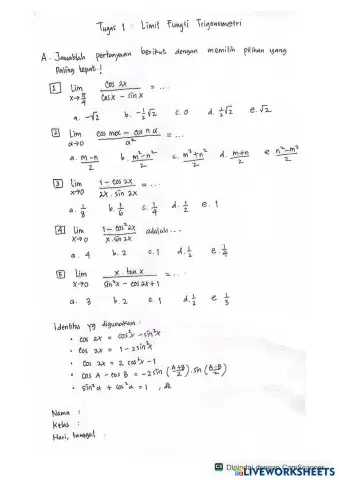 Tugas 1 : Limit Fungsi Trigonometri
A. Jawablah pertanyaan berikut dengan memilih pilihan yang
paling tepat !
1 Lim x→π/4 cos 2x / cos x − sin x = ...
a. −√2 b. −1/2 √2 c. 0 d. 1/2 √2 e. √2
2 Lim α→0 cos mα − cos nα / α² = ...
a. m−n/2 b. m²−n²/2 c. m²+n²/2 d. m+n/2 e. n²−m²/2
3 Lim x→0 1 − cos 2x / 2x . sin 2x = ...
a. 1/8 b. 1/6 c. 1/4 d. 1/2 e. 1
4 Lim x→0 1 − cos² 2x / x . sin 2x adalah ...
a. 4 b. 2 c. 1 d. 1/2 e. 1/4
5 Lim x→0 x . tan x / sin² x − cos 2x + 1 = ...
a. 3 b. 2 c. 1 d. 1/2 e. 1/3
Identitas yg digunakan :
• cos 2x = cos² x − sin² x
• cos 2x = 1 − 2 sin² x
• cos 2x = 2 cos² x − 1
• cos A − cos B = −2 sin (A+B/2) . sin (A−B/2)
• sin² α + cos² α = 1 , dll
Nama :
Kelas :
Hari, tanggal :
Dipindai dengan CamScanner
LIVEWORKSHEETS